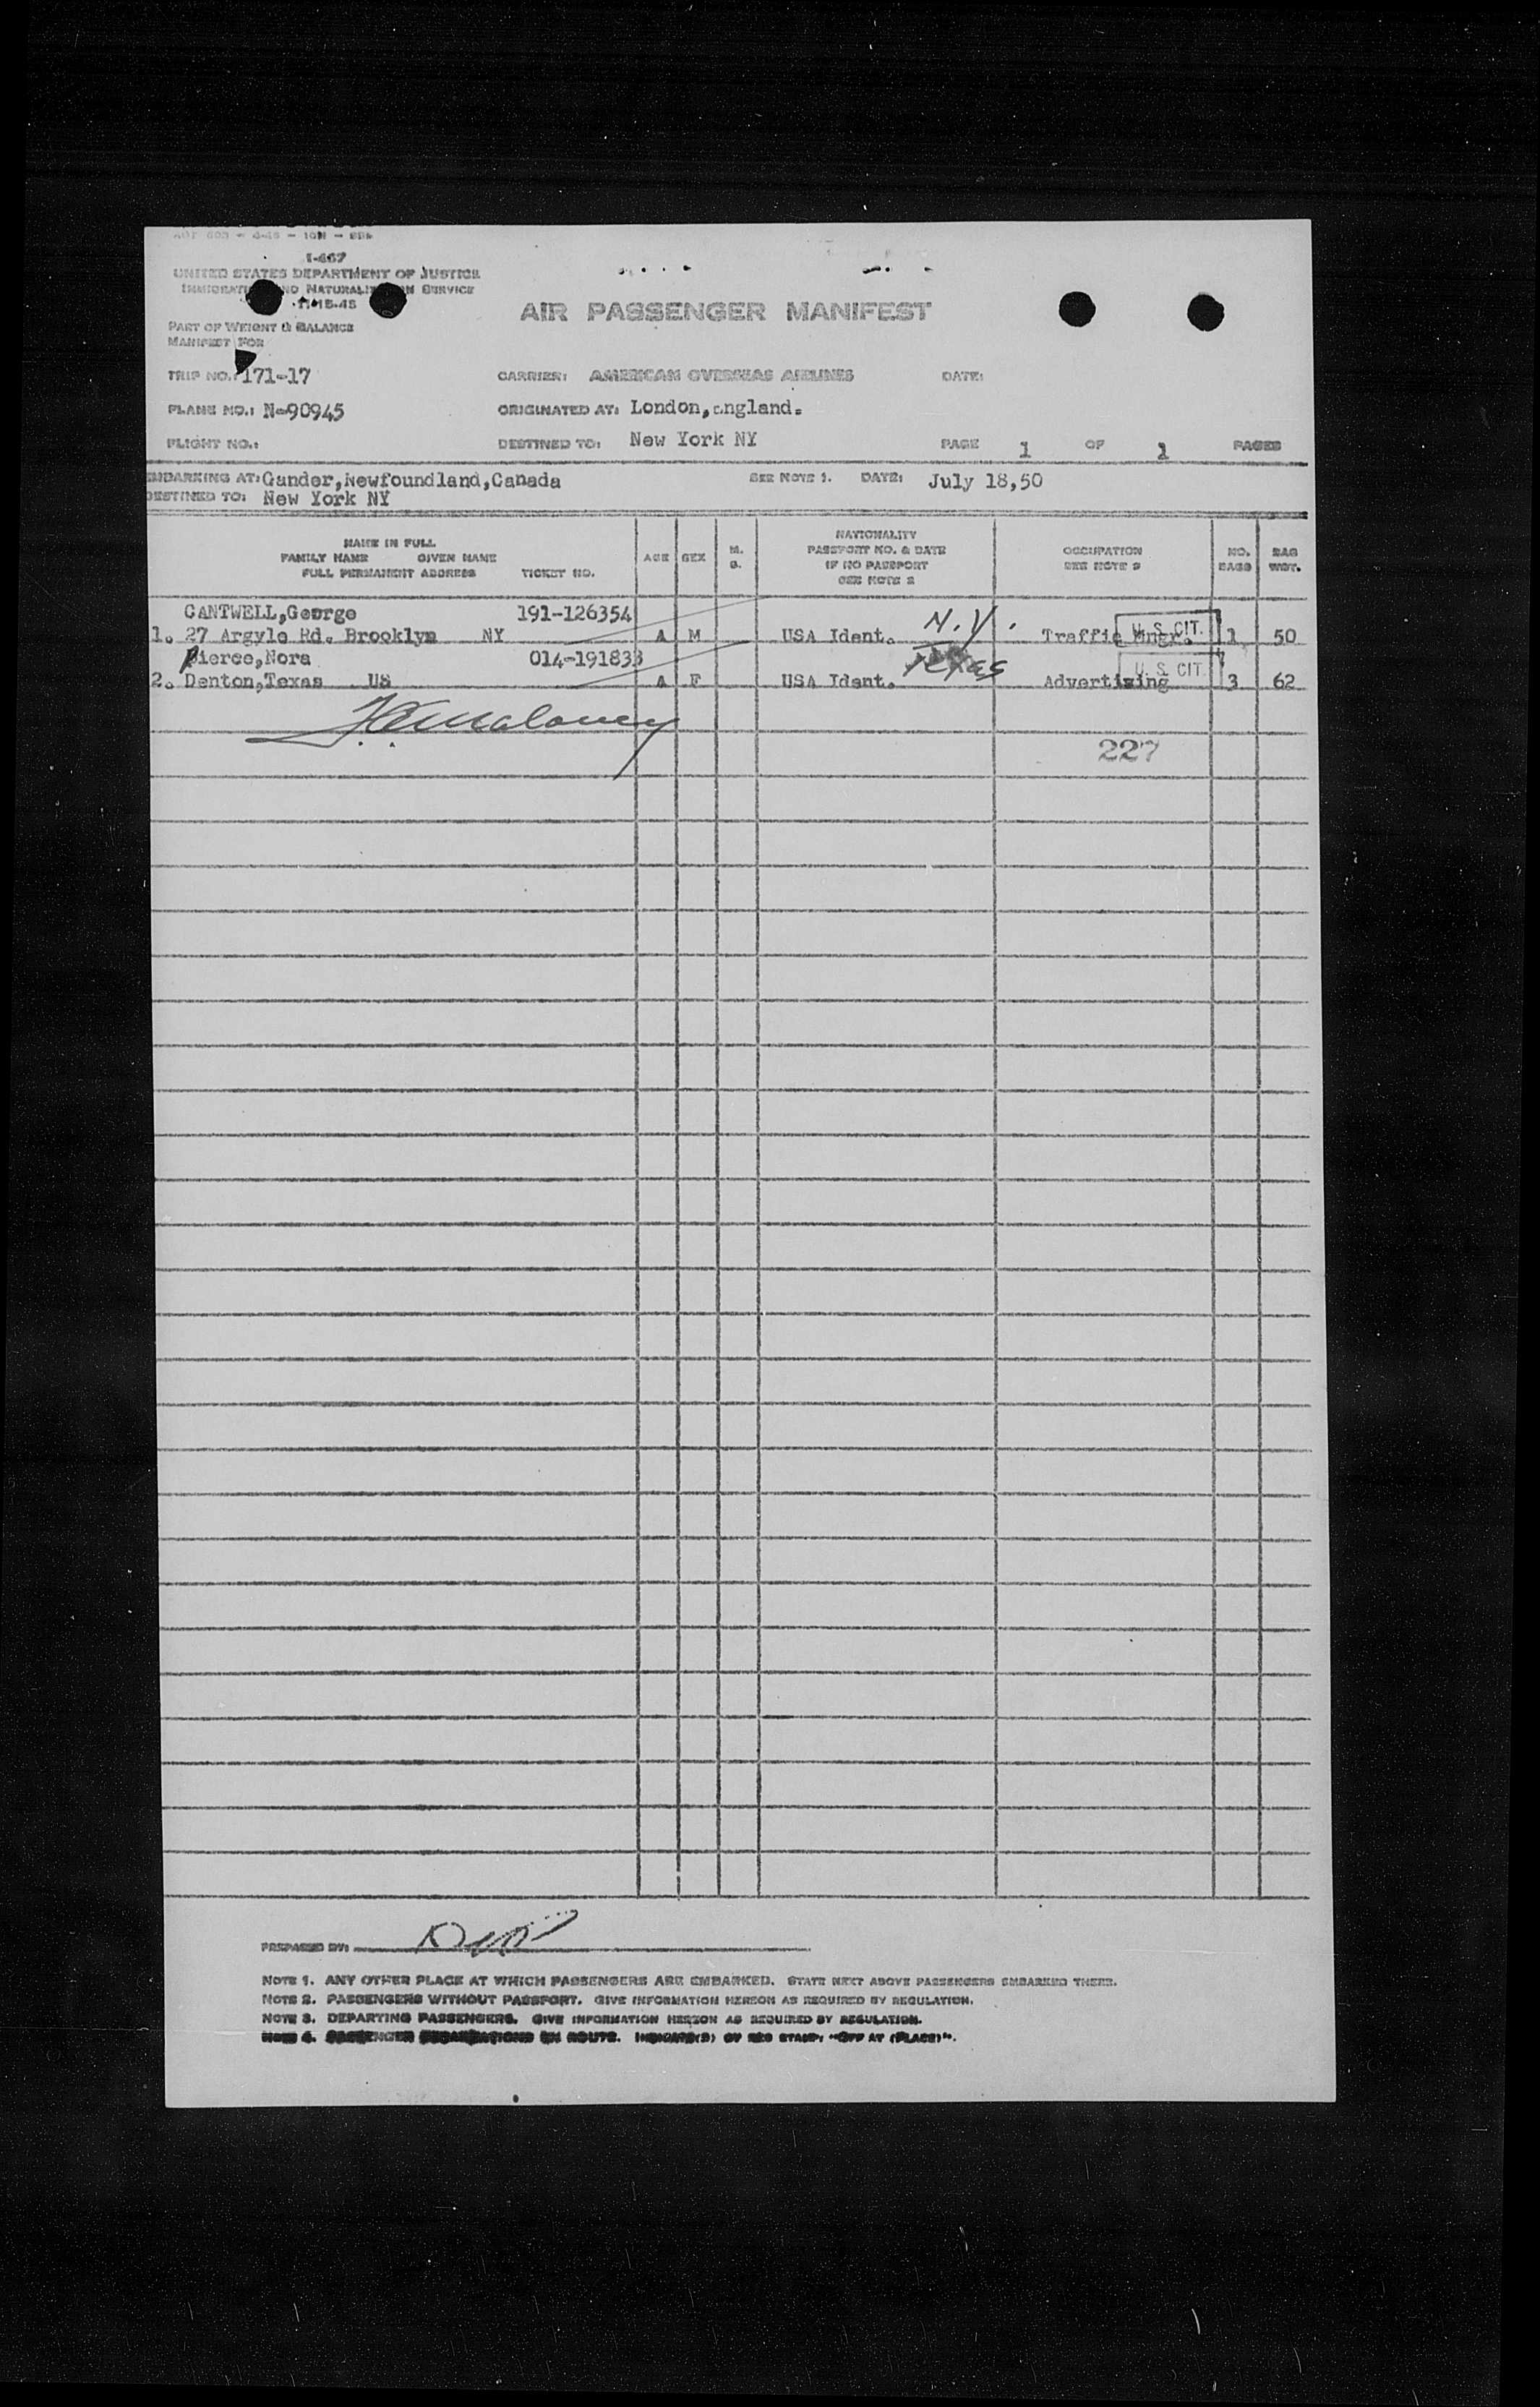 I-467
UNITED STATES DEPARTMENT OF JUSTICE
IMMIGRATION AND NATURALIZATION SERVICE
11-15-45
AIR PASSENGER MANIFEST
PART OF WEIGHT & BALANCE
MANIFEST FOR
TRIP NO.: 171-17 CARRIER: AMERICAN OVERSEAS AIRLINES DATE:
PLANE NO.: N-90945 ORIGINATED AT: London,England.
FLIGHT NO.: DESTINED TO: New York NY PAGE 1 OF 1 PAGES
EMBARKING AT: Gander,Newfoundland,Canada SEE NOTE 1. DATE: July 18,50
DESTINED TO: New York NY
NAME IN FULL
FAMILY NAME GIVEN NAME
FULL PERMANENT ADDRESS TICKET NO.
AGE SEX M. S.
NATIONALITY
PASSPORT NO. & DATE
IF NO PASSPORT
SEE NOTE 2
OCCUPATION
SEE NOTE 3
NO. BAGS
BAG WGT.
CANTWELL,George 191-126354
1. 27 Argyle Rd. Brooklyn NY A M USA Ident. N.Y. Traffic Mngr. U.S. CIT. 1 50
Pierce,Nora 014-191833
2. Denton,Texas US A F USA Ident. Texas Advertizing U.S. CIT. 3 62
227
PREPARED BY:
NOTE 1. ANY OTHER PLACE AT WHICH PASSENGERS ARE EMBARKED. STATE NEXT ABOVE PASSENGERS EMBARKED THERE.
NOTE 2. PASSENGERS WITHOUT PASSPORT. GIVE INFORMATION HEREON AS REQUIRED BY REGULATION.
NOTE 3. DEPARTING PASSENGERS. GIVE INFORMATION HEREON AS REQUIRED BY REGULATION.
NOTE 4. PASSENGER EN ROUTE. INDICATE(D) BY RED STAMP: "OFF AT (PLACE)".